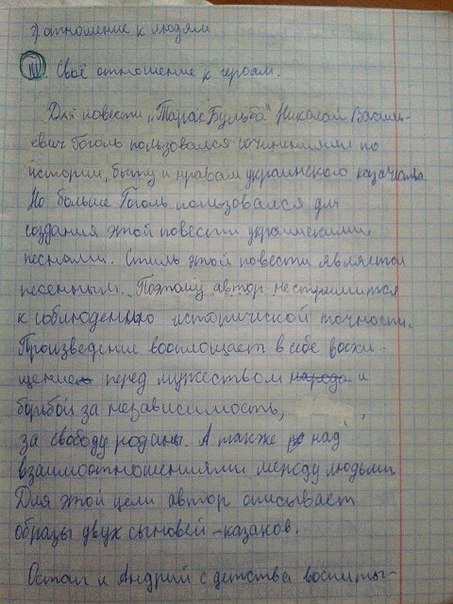 7) отношение к людям
IV Своё отношение к героям.
Для повести „Тарас Бульба" Николай Василь-
евич Гоголь пользовался сочинениями по
истории, быту и нравам украинского казачества.
Но больше Гоголь пользовался для
создания этой повести украинскими
песнами. Стиль этой повести является
песенным. Поэтому автор не стремится
к соблюдению исторической точности.
Произведение воплощает в себе восхи-
щение перед мужеством народа и
борьбой за независимость,
за свободу родины. А также над
взаимоотношениями между людьми
Для этой цели автор описывает
образы двух сыновей-казаков.
Остап и Андрий с детства воспиты-